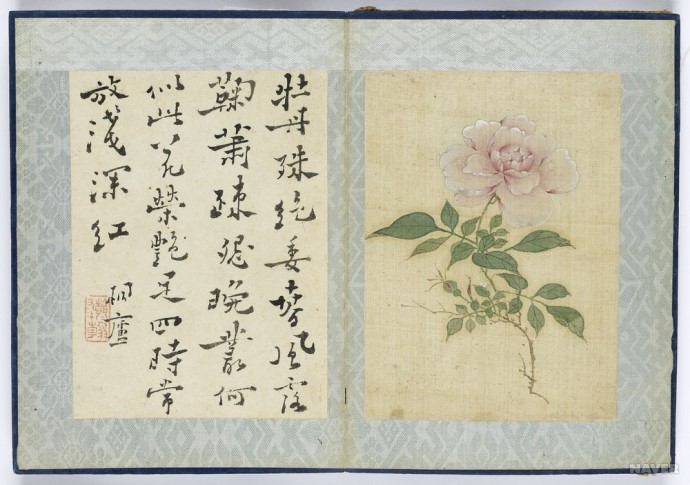 牡丹殊絕委春風露
菊蕭疎怨晚叢何
似此花榮艷足四時常
放淺深紅
NAVER